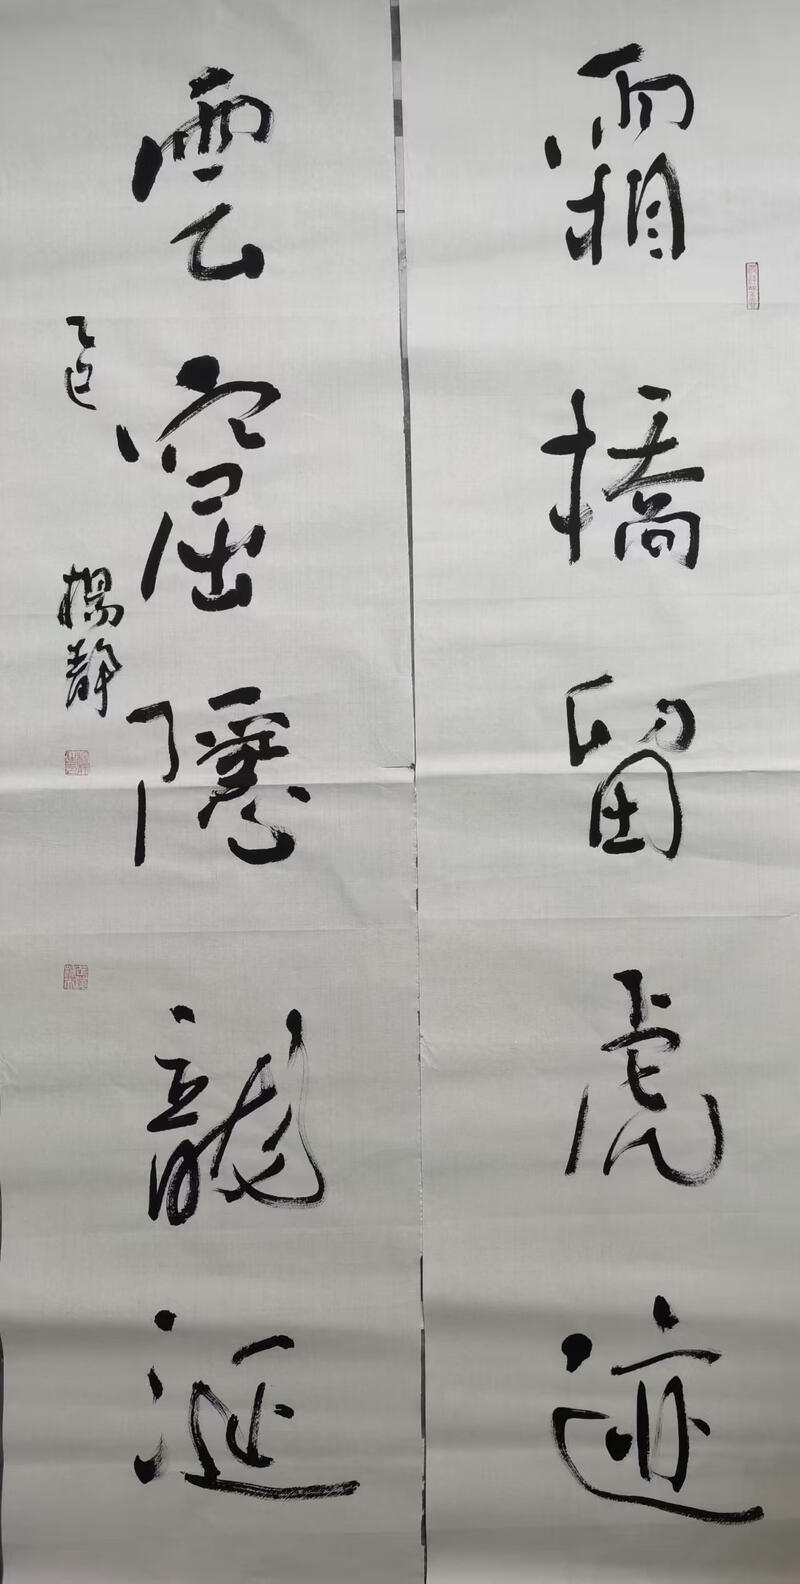 霜橋留虎迹
雲窟隱龍涎
乙巳 楊靜